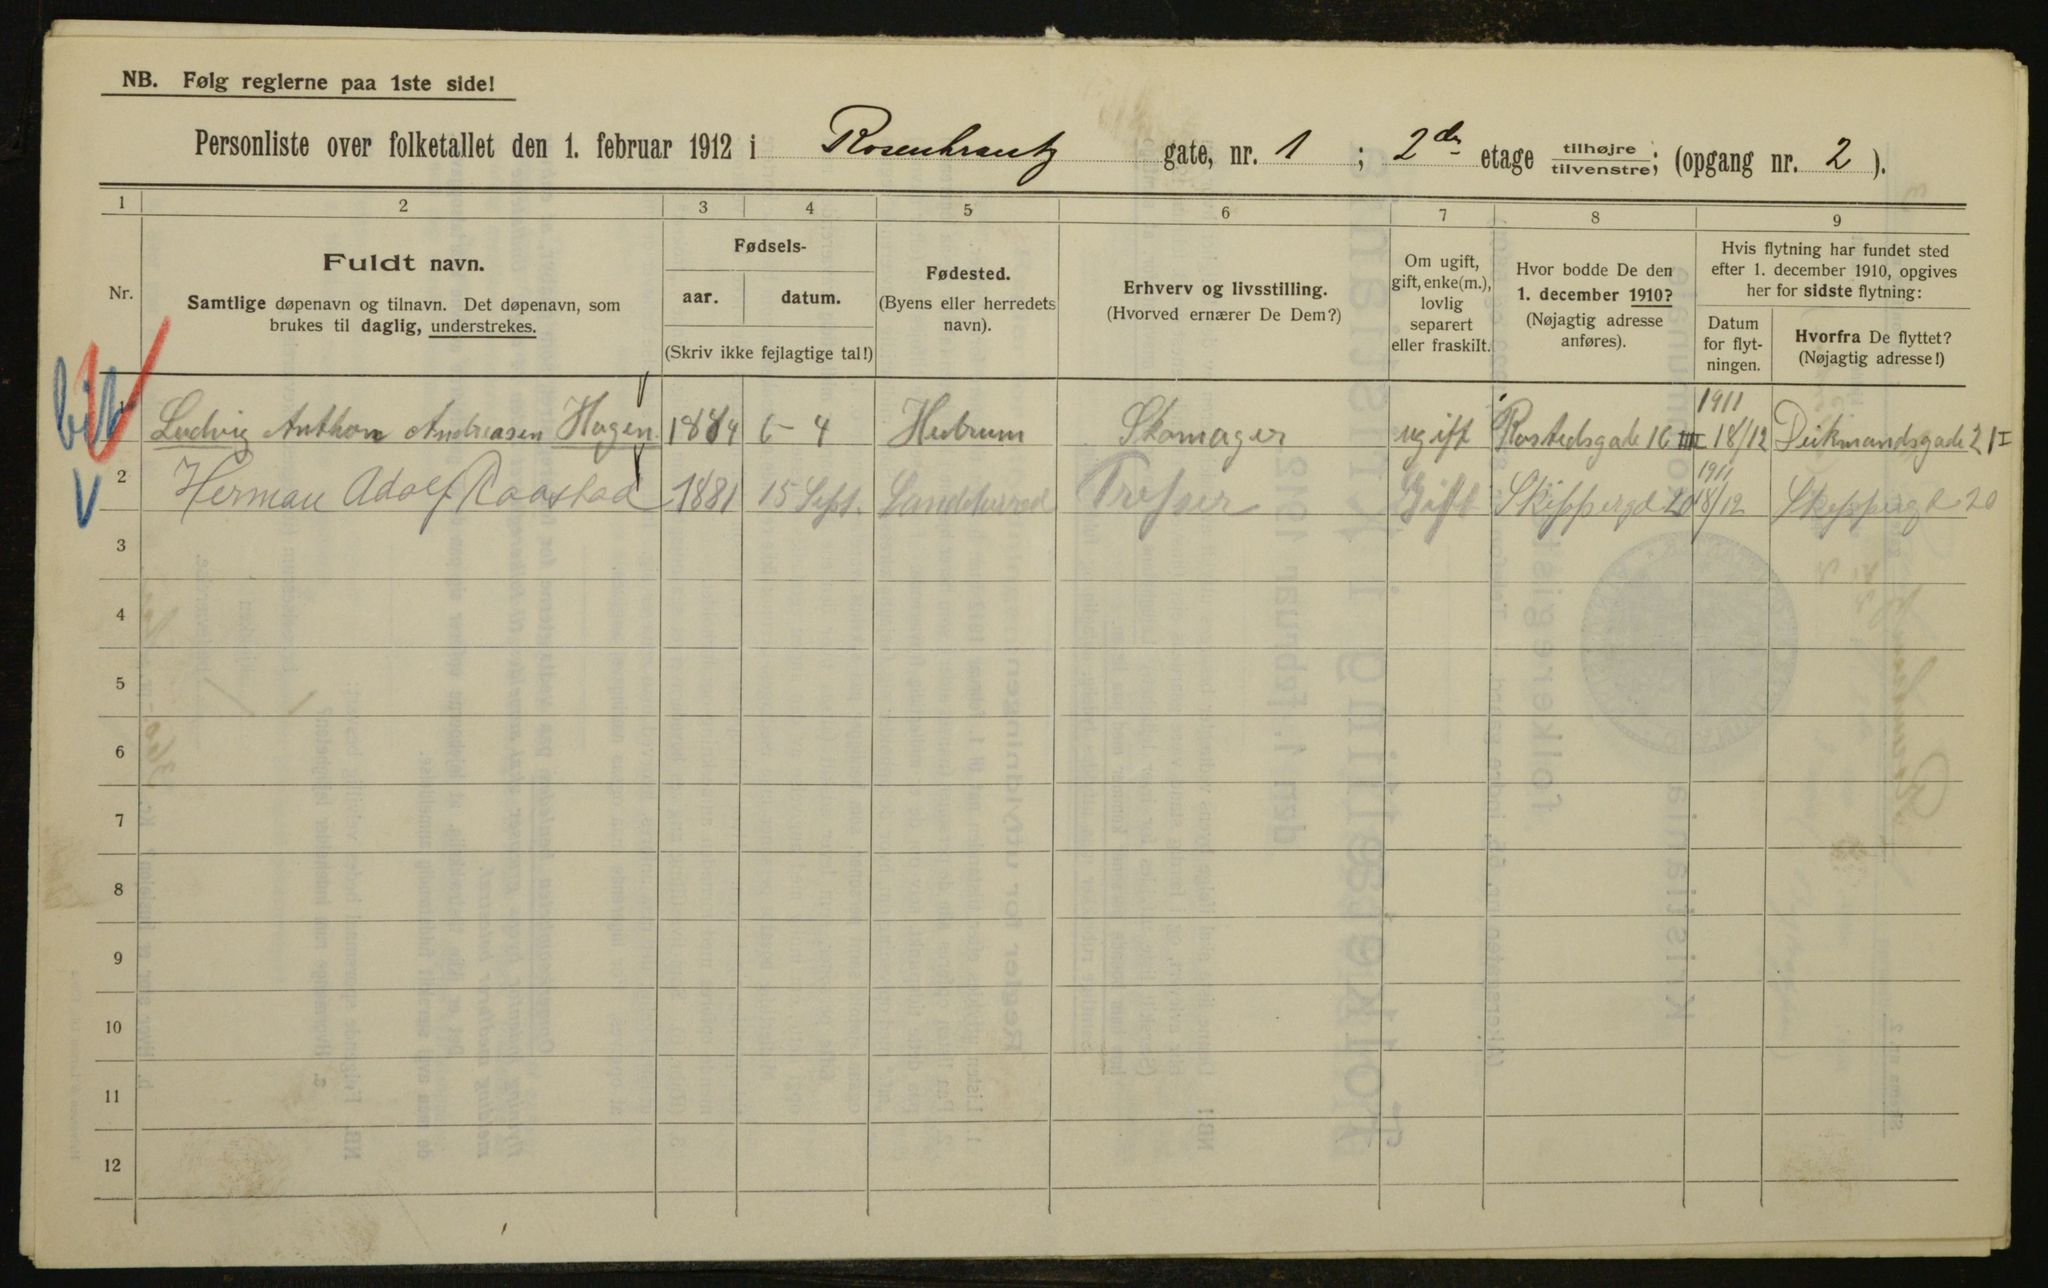 NB. Følg reglerne paa 1ste side!
Personliste over folketallet den 1. februar 1912 i Rosenkrantz gate, nr. 1 ; 2den etage tilhøjre tilvenstre; (opgang nr. 2 ).
1 2 3 4 5 6 7 8 9
Nr.
Fuldt navn.
Samtlige døpenavn og tilnavn. Det døpenavn, som
brukes til daglig, understrekes.
Fødsels-
aar. datum.
(Skriv ikke fejlagtige tal!)
Fødested.
(Byens eller herredets
navn).
Erhverv og livsstilling.
(Hvorved ernærer De Dem?)
Om ugift,
gift, enke(m.),
lovlig
separert
eller fraskilt.
Hvor bodde De den
1. december 1910?
(Nøjagtig adresse
anføres).
Hvis flytning har fundet sted
efter 1. december 1910, opgives
her for sidste flytning:
Datum
for flyt-
ningen.
Hvorfra De flyttet?
(Nøjagtig adresse!)
1 Ludvig Anthon Andreasen Hagen 1884 6-4 Skomager ugift Rostedsgade 16 III 1911 18/12 Deikmandsgade 21 I
2 Herman Adolf Raastad 1881 15 Sept. Sandeherred Gift Skippergd 20 1911 18/12 Skippergd 20
3
4
5
6
7
8
9
10
11
12